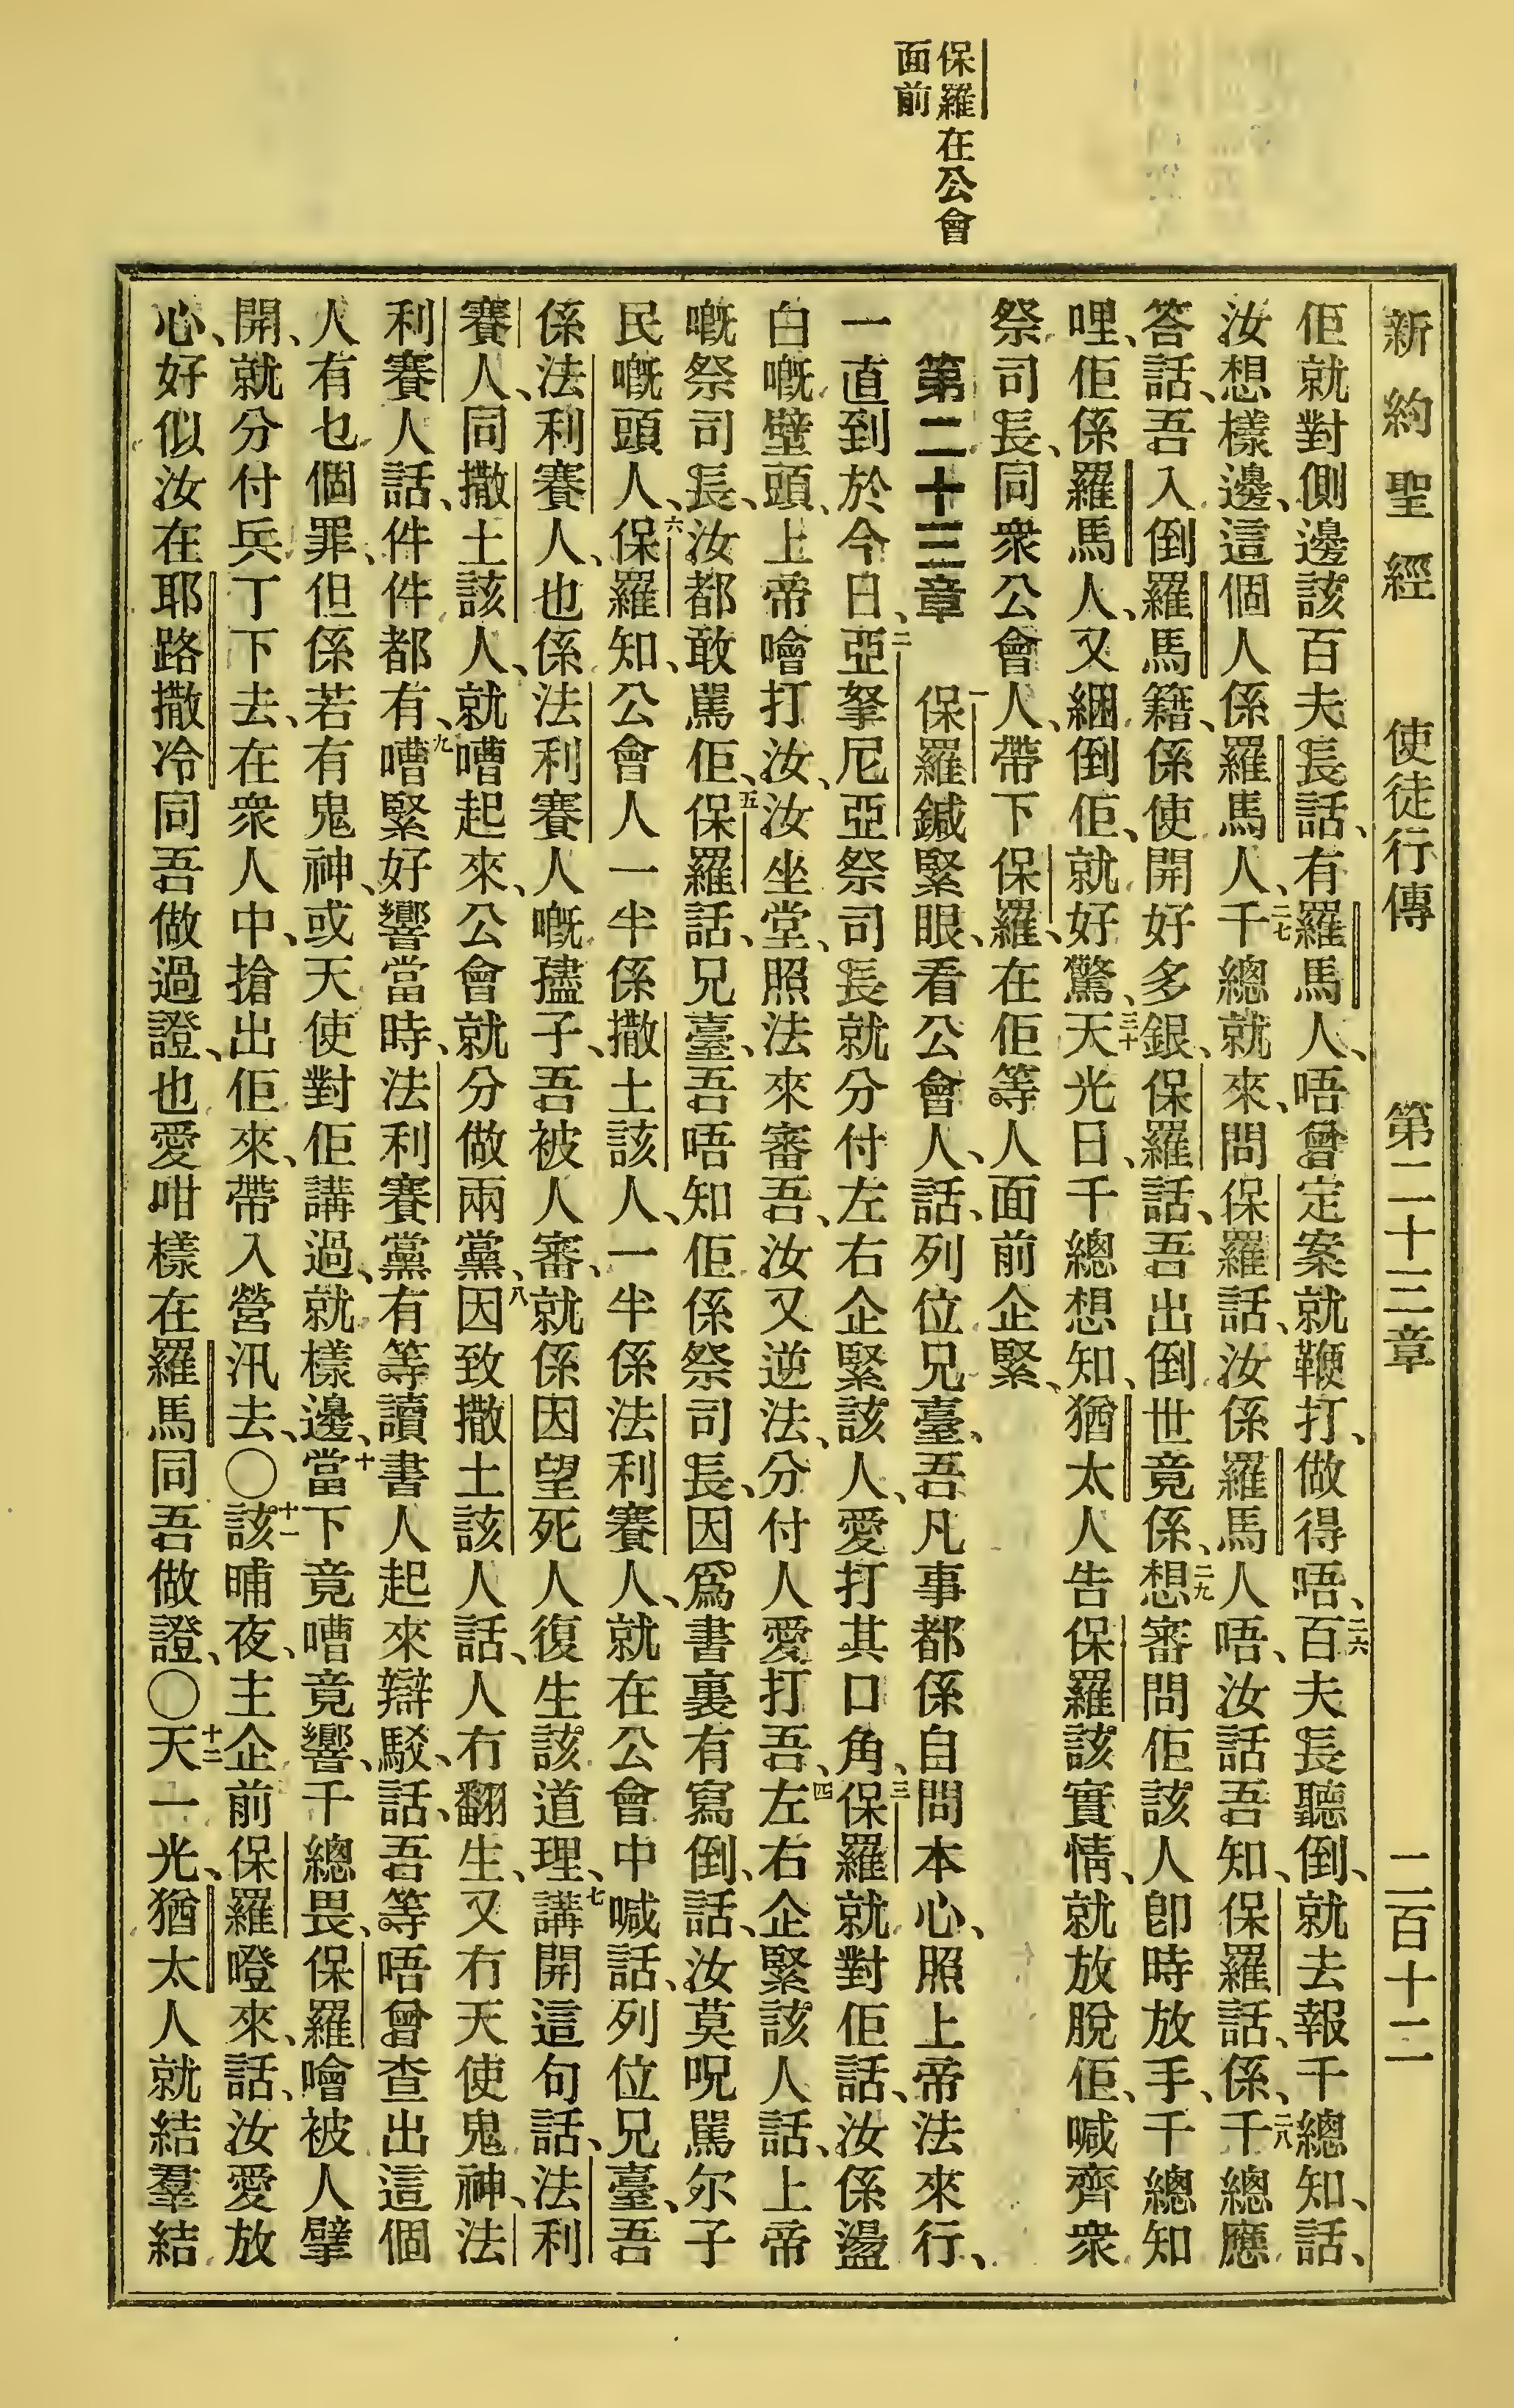 新約聖經 使徒行傳 第二十三章 二百十二
保羅在公會
面前
佢就對側邊該百夫長話、有羅馬人、唔曾定案就鞭打、做得唔、二六百夫長聽倒、就去報千總知、話、
汝想樣邊、這個人係羅馬人、二七千總就來、問保羅話、汝係羅馬人唔、汝話吾知、保羅話、係、二八千總應
答話、吾入倒羅馬籍、係使開好多銀、保羅話、吾出倒世竟係、二九想審問佢該人卽時放手、千總知
哩、佢係羅馬人、又綑倒佢、就好驚、三十天光日、千總想知、猶太人告保羅該實情、就放脫佢、喊齊衆
祭司長、同衆公會人、帶下保羅、在佢等人面前企緊、
第二十三章 一保羅鍼緊眼、看公會人、話、列位兄臺、吾凡事都係自問本心、照上帝法來行、
一直到於今日、二亞拏尼亞祭司長就分付左右企緊該人、愛打其口角、三保羅就對佢話、汝係盪
白嘅壁頭、上帝噲打汝、汝坐堂、照法來審吾、汝又逆法、分付人愛打吾、四左右企緊該人話、上帝
嘅祭司長、汝都敢駡佢、五保羅話、兄臺、吾唔知佢係祭司長、因爲書裏有寫倒、話、汝莫呪駡尔子
民嘅頭人、六保羅知、公會人一半係撒土該人、一半係法利賽人、就在公會中喊話、列位兄臺、吾
係法利賽人、也係法利賽人嘅孻子、吾被人審、就係因望死人復生該道理、七講開這句話、法利
賽人、同撒土該人、就嘈起來、公會就分做兩黨、八因致撒土該人話、人冇翻生、又冇天使鬼神、法
利賽人話、件件都有、九嘈緊好響當時、法利賽黨有等讀書人起來辯駁、話、吾等唔曾查出這個
人有乜個罪、但係若有鬼神、或天使對佢講過、就樣邊、十當下竟嘈竟響、千總畏、保羅噲被人擘
開、就分付兵丁下去、在衆人中、搶出佢來、帶入營汛去、〇十一該晡夜、主企前保羅墱來、話、汝愛放
心、好似汝在耶路撒冷同吾做過證、也愛咁樣在羅馬同吾做證、〇十二天一光、猶太人就結羣結